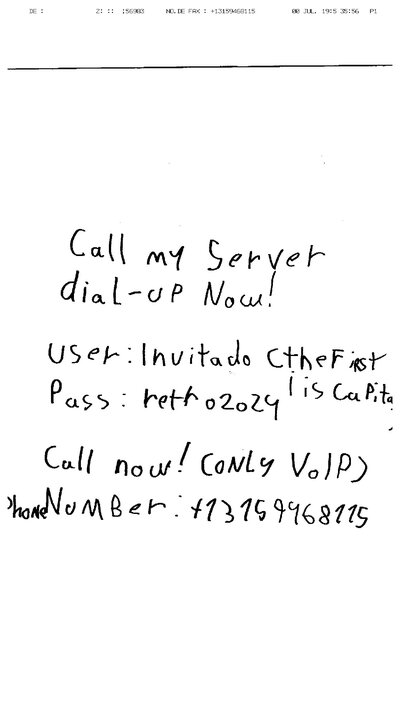 DE : Z: :: ;56983 NO.DE FAX : +13159468115 00 JUL. 19:5 35:56 P1
Call my Server
dial-up Now!
User: Invitado (the First
Pass: retro2024 I is Capita
Call now! (ONLY VoIP)
Phone Number: +13159468115